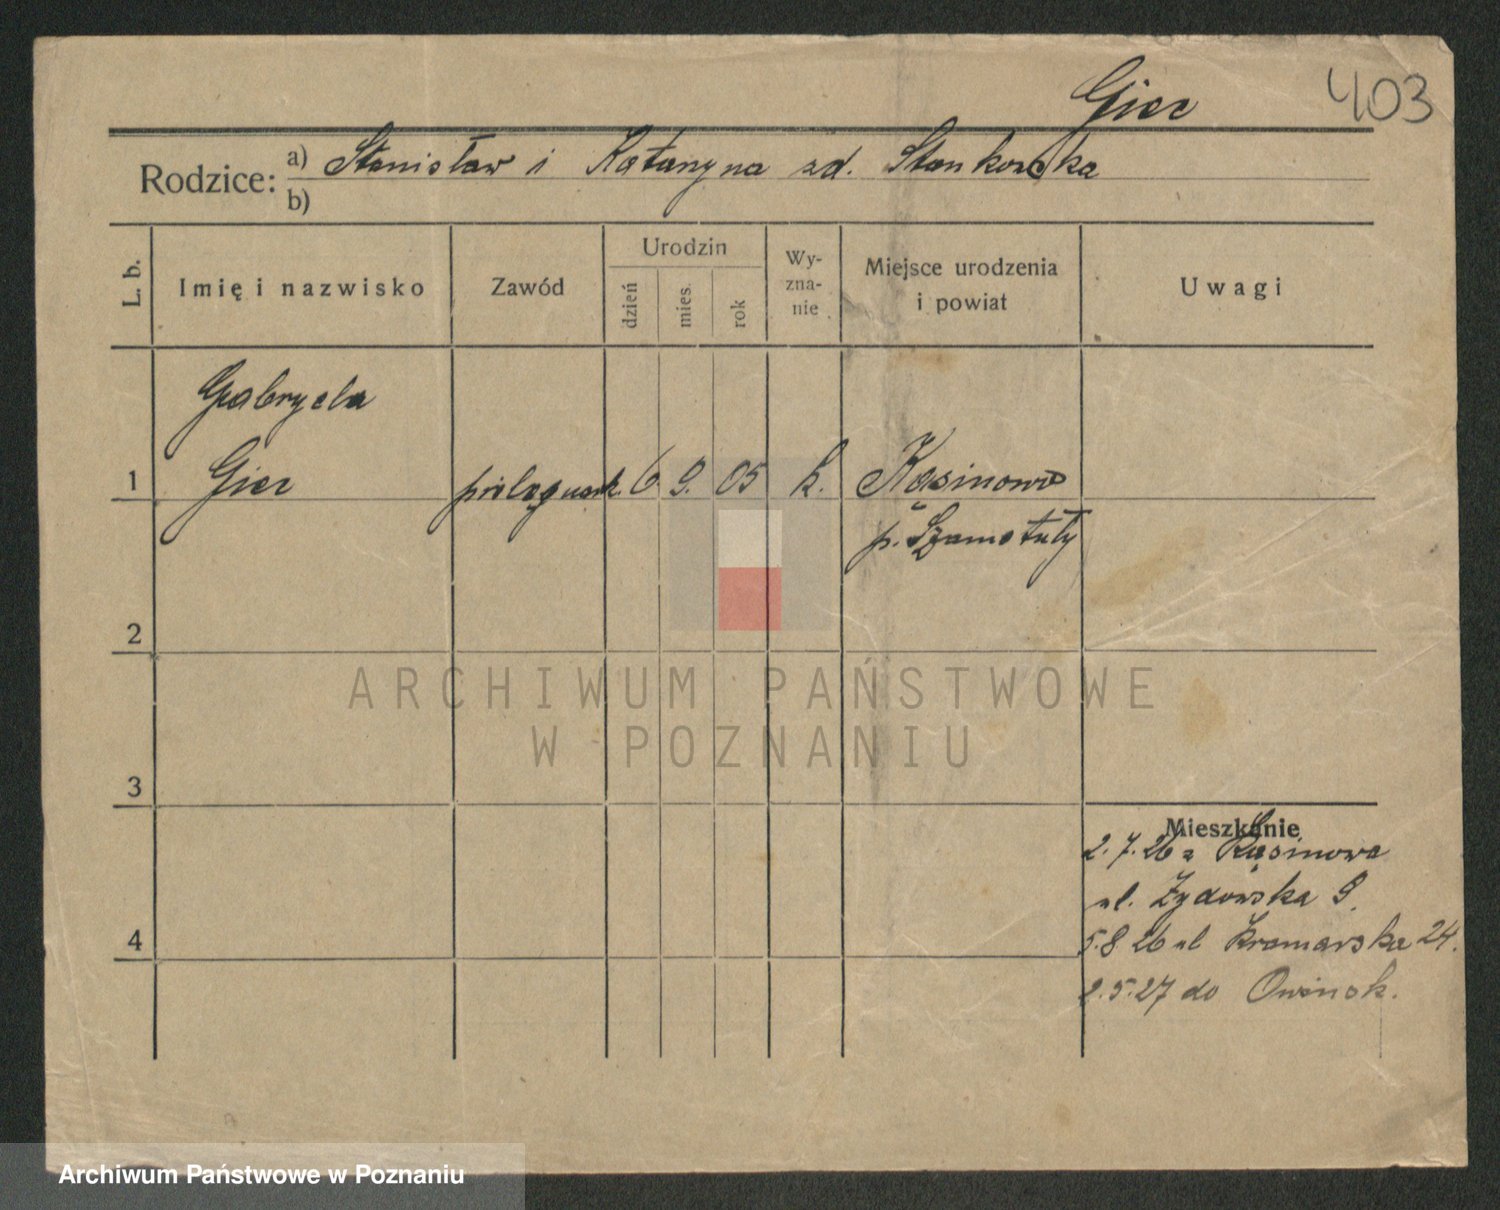 Gier 403
Rodzice: a) Stanisław i Katarzyna zd.
b)
L. b. Imię i nazwisko Zawód Urodzin dzień mies. rok Wy-zna-nie Miejsce urodzenia i powiat Uwagi
Gabryela
1 Gier 6 9. 05 k. Kąsinowo
p. Szamotuły
2
ARCHIWUM PAŃSTWOWE
W POZNANIU
3
Mieszkanie
2.7.26 z Kąsinowa
ul. Żydowska 9.
4 5.8 26 ul Kramarska 24.
2.5.27 do Owińsk.
Archiwum Państwowe w Poznaniu